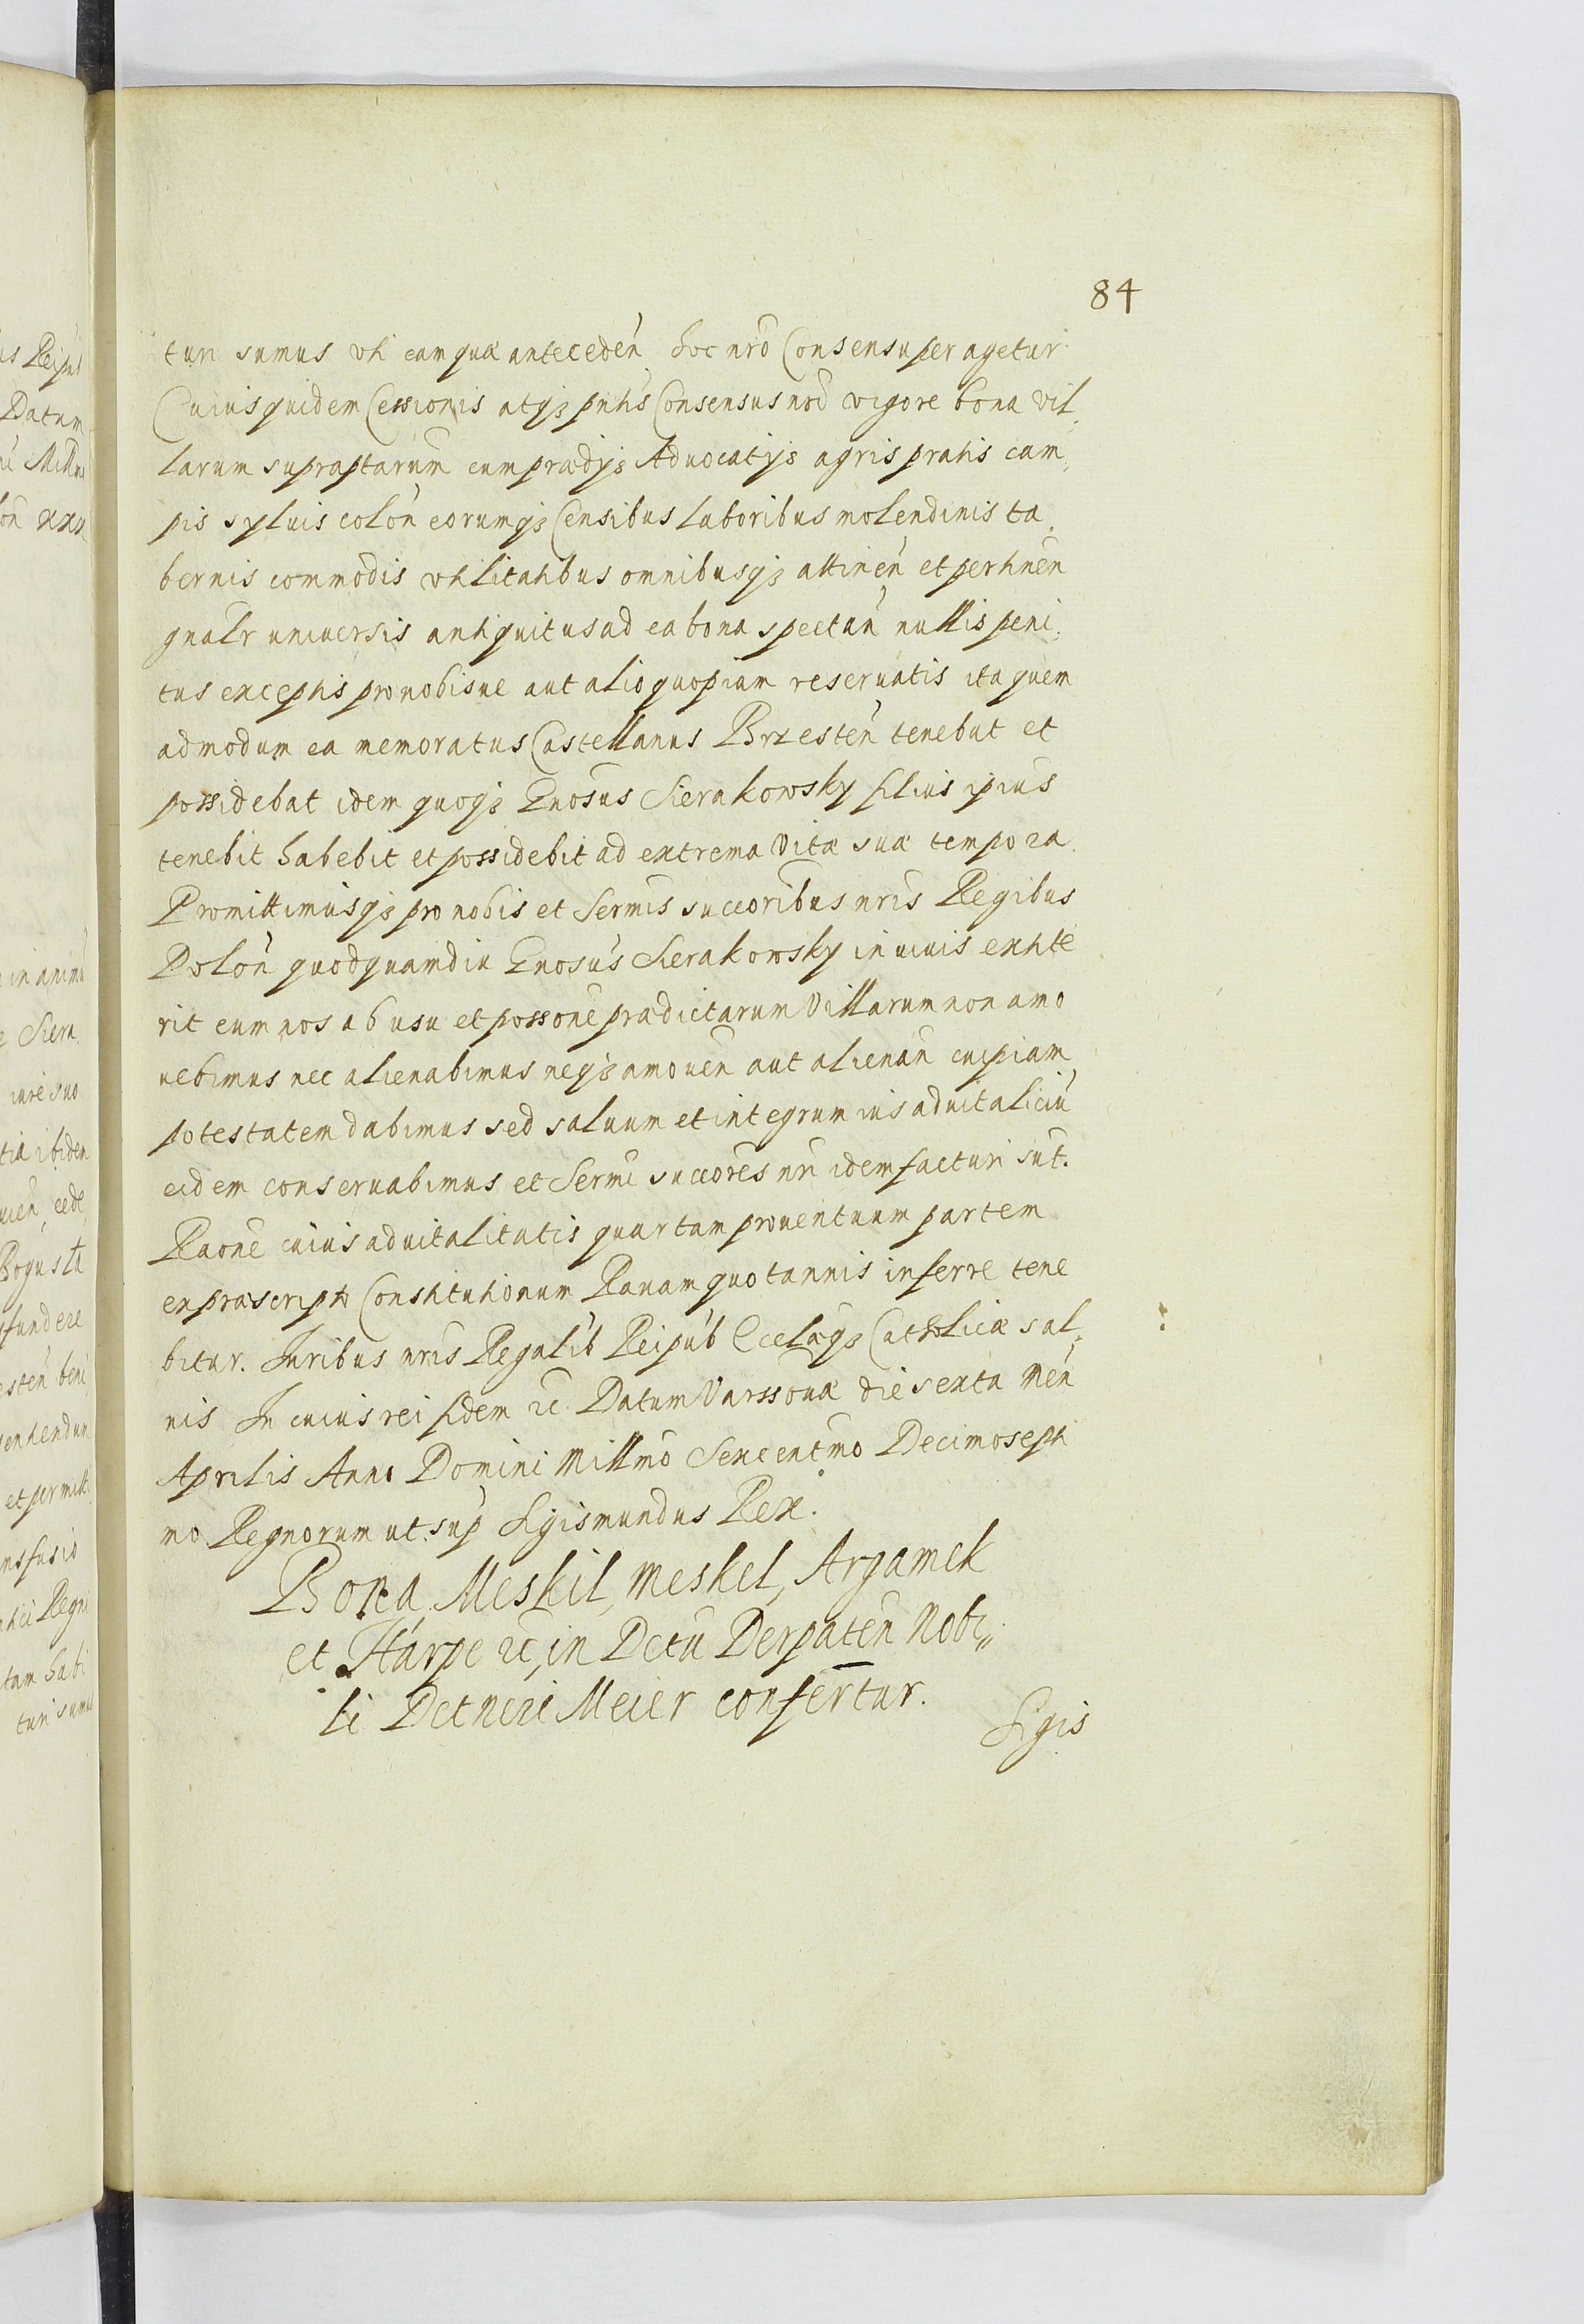 84
turi sumus uti eam quæ anteceden hoc nrõ Consensu peragetur
Cuius quidem Cessionis atq₃ pntis Consensus nrĩ vigore bona vil,
larum supraptarum cum prædijs Aduocatijs agris pratis cam,
pis syluis colon̄ eorumq₃ Censibus laboribus molendinis ta,
bernis commodis utilitatibus omnibusq₃ attinen̄ et pertinen̄
gnalr uniuersis antiquitus ad ea bona spectan̄ nullis peni,
tus exceptis pro nobisue aut alio quopiam reseruatis ita quem
admodum ea memoratus Castellanus Brzesten̄ tenebat et
possidebat idem quoq₃ Gnosus Sierakowsky filius ipius
tenebit habebit et possidebit ad extrema Vitæ suæ tempora.
Promittimusq₃ pro nobis et Sermis succoribus nris Regibus
Polon̄ quod quamdiu Gnosus Sierakowsky in uiuis extite
rit eum nos ab usu et possone prædictarum Villarum non amo
uebimus nec alienabimus neq₃ amouen̄ aut alienan̄ cuipiam
potestatem dabimus sed saluum et integrum ius aduitaliciũ
eidem conseruabimus et Sermi succores nri idem facturi sut.
Raone cuius aduitalitatis quartam prouentuum partem
ex præscripto Constitutionum Rauam quotannis inferre tene
bitur. Iuribus nris Regalib Reipub Ecclæq₃ Catholicæ sal,
uis In cuius rei fidem &c. Datum Varssouiæ die sexta Men̄
Aprilis Anno Domini Millmo Sexcentmo Decimosepti
mo Regnorum ut sup Sigismundus Rex.
Bona Meskil, Meskel, Argamek
et Harpe &c, in Dctu Derpaten̄ Nobi,,
li Detneri Meier confertur.
Sigis